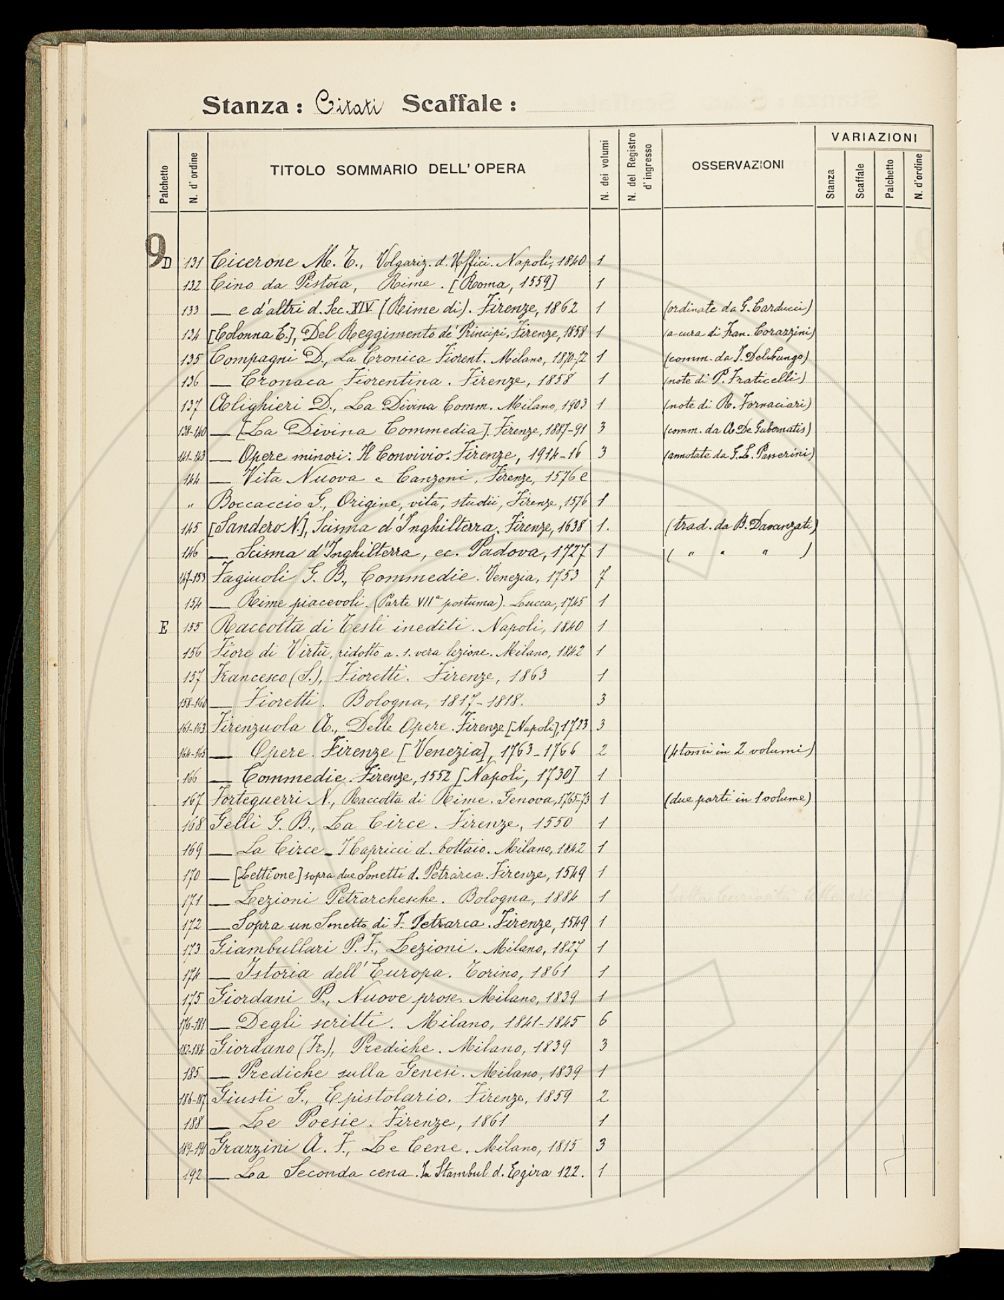 Stanza: Citati Scaffale:
Palchetto N. d'ordine TITOLO SOMMARIO DELL'OPERA N. dei volumi N. del Registro d'ingresso OSSERVAZIONI VARIAZIONI
Stanza Scaffale Palchetto N. d'ordine
9
D 131 Cicerone M. T., Volgariz. d. Uffici. Napoli, 1840 1
132 Cino da Pistoia, Rime. [Roma, 1559] 1
133 — e d'altri d. Sec. XIV (Rime di). Firenze, 1862 1 (ordinate da G. Carducci)
134 [Colonna E.], Del Reggimento de' Principi, Firenze, 1858 1 (a cura di Fran. Corazzini)
135 Compagni D., La Cronica Fiorent. Milano, 1870-72 1 (comm. da I. Del Lungo)
136 — Cronaca Fiorentina. Firenze, 1858 1 (note di P. Fraticelli)
137 Alighieri D., La Divina Comm. Milano, 1903 1 (note di R. Fornaciari)
138-140 — [La Divina Commedia]. Firenze, 1887-91 3 (comm. da A. De Gubernatis)
141-143 — Opere minori: Il Convivio. Firenze, 1914-16 3 (annotate da G. L. Passerini)
144 — Vita Nuova e Canzoni. Firenze, 1576 e
" Boccaccio G., Origine, vita, studii, Firenze, 1576 1
145 [Sandero N.], Scisma d'Inghilterra. Firenze, 1638 1. (trad. da B. Davanzati)
146 — Scisma d'Inghilterra, ec. Padova, 1727 1 ( " " " )
147-153 Fagiuoli G. B., Commedie. Venezia, 1753 7
154 — Rime piacevoli. (Parte VIIa postuma). Lucca, 1745 1
E 155 Raccolta di Testi inediti. Napoli, 1840 1
156 Fiore di Virtù, ridotto a. s. vera lezione. Milano, 1842 1
157 Francesco (S.), Fioretti. Firenze, 1863 1
158-160 — Fioretti. Bologna, 1817-1818. 3
161-163 Firenzuola A., Delle Opere. Firenze [Napoli], 1723 3
164-165 — Opere. Firenze [Venezia], 1763-1766 2 (4 tomi in 2 volumi)
166 — Commedie. Firenze, 1552 [Napoli, 1730] 1
167 Forteguerri N., Raccolta di Rime. Genova, 1765-73 1 (due parti in 1 volume)
168 Gelli G. B., La Circe. Firenze, 1550 1
169 — La Circe - I Capricci d. bottaio. Milano, 1842 1
170 — [Lettione] sopra due Sonetti d. Petrarca. Firenze, 1549 1
171 — Lezioni Petrarchesche. Bologna, 1884 1
172 — Sopra un Sonetto di F. Petrarca. Firenze, 1549 1
173 Giambullari P. F., Lezioni. Milano, 1827 1
174 — Istoria dell'Europa. Torino, 1861 1
175 Giordani P., Nuove prose. Milano, 1839 1
176-181 — Degli scritti. Milano, 1841-1845 6
182-184 Giordano (Fr.), Prediche. Milano, 1839 3
185 — Prediche sulla Genesi. Milano, 1839 1
186-187 Giusti G., Epistolario. Firenze, 1859 2
188 — Le Poesie. Firenze, 1861 1
189-191 Grazzini A. F., Le Cene. Milano, 1815 3
192 — La Seconda cena. In Stambul d. Egira 122. 1